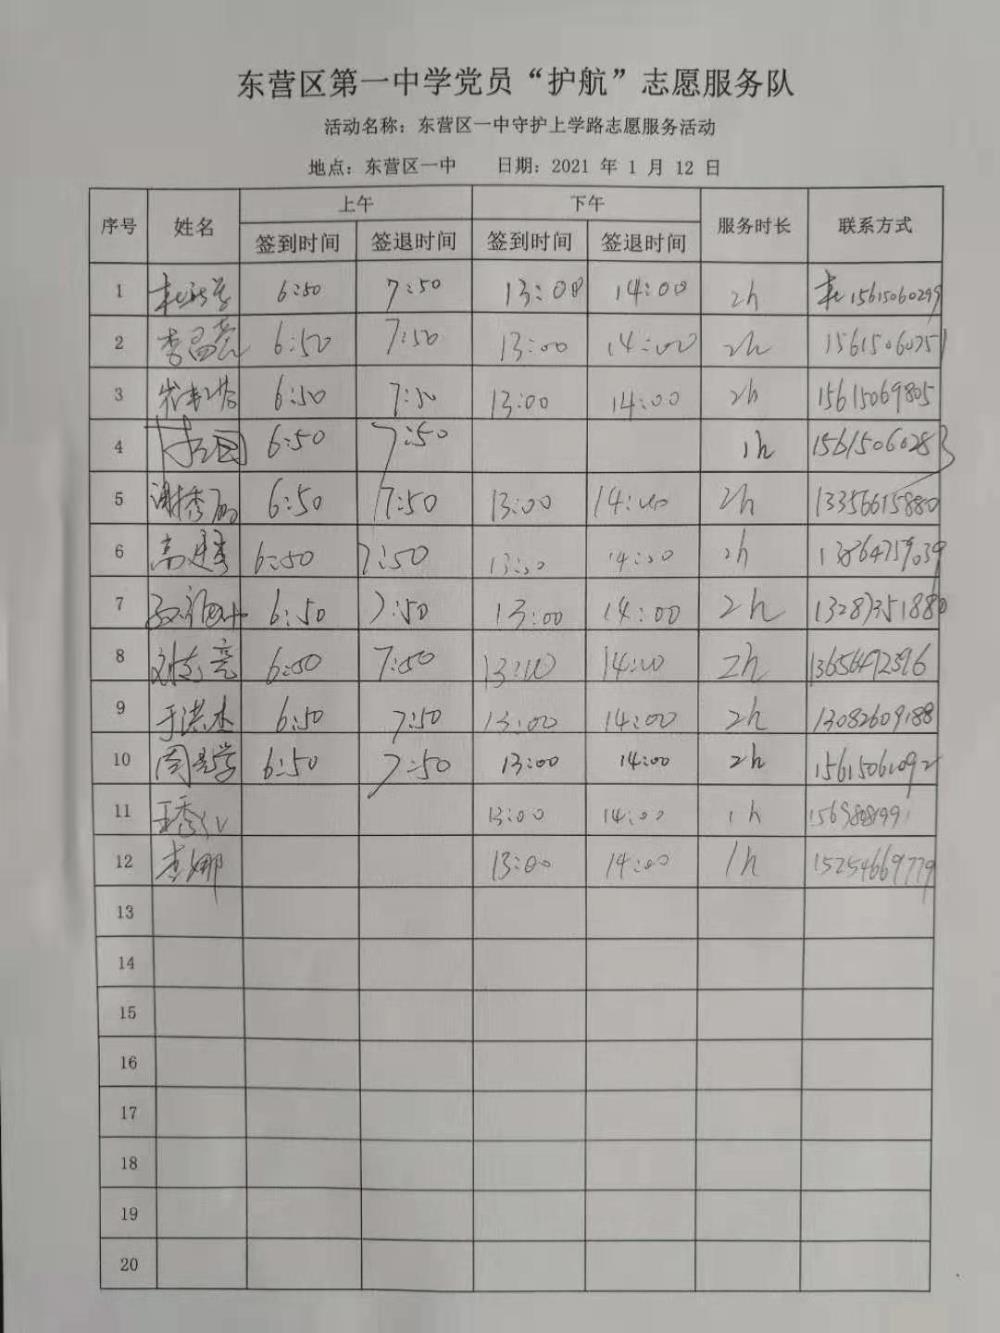 东营区第一中学党员“护航”志愿服务队
活动名称：东营区一中守护上学路志愿服务活动
地点：东营区一中 日期：2021 年 1 月 12 日
序号 姓名 上午 下午 服务时长 联系方式
签到时间 签退时间 签到时间 签退时间
1 6:50 7:50 13:00 14:00 2h 15615060299
2 李昌亮 6:50 7:50 13:00 14:00 2h 15615060251
3 6:50 7:50 13:00 14:00 2h 15615069805
4 6:50 7:50 1h 15615060283
5 谢秀丽 6:50 7:50 13:00 14:00 2h 13356615880
6 6:50 7:50 13:00 14:00 2h 13864759039
7 6:50 7:50 13:00 14:00 2h 13287351880
8 刘志亮 6:50 7:50 13:00 14:00 2h 13656492396
9 于洪杰 6:50 7:50 13:00 14:00 2h 13082609188
10 6:50 7:50 13:00 14:00 2h 15615061092
11 13:00 14:00 1h
12 李娜 13:00 14:00 1h 15254669779
13
14
15
16
17
18
19
20